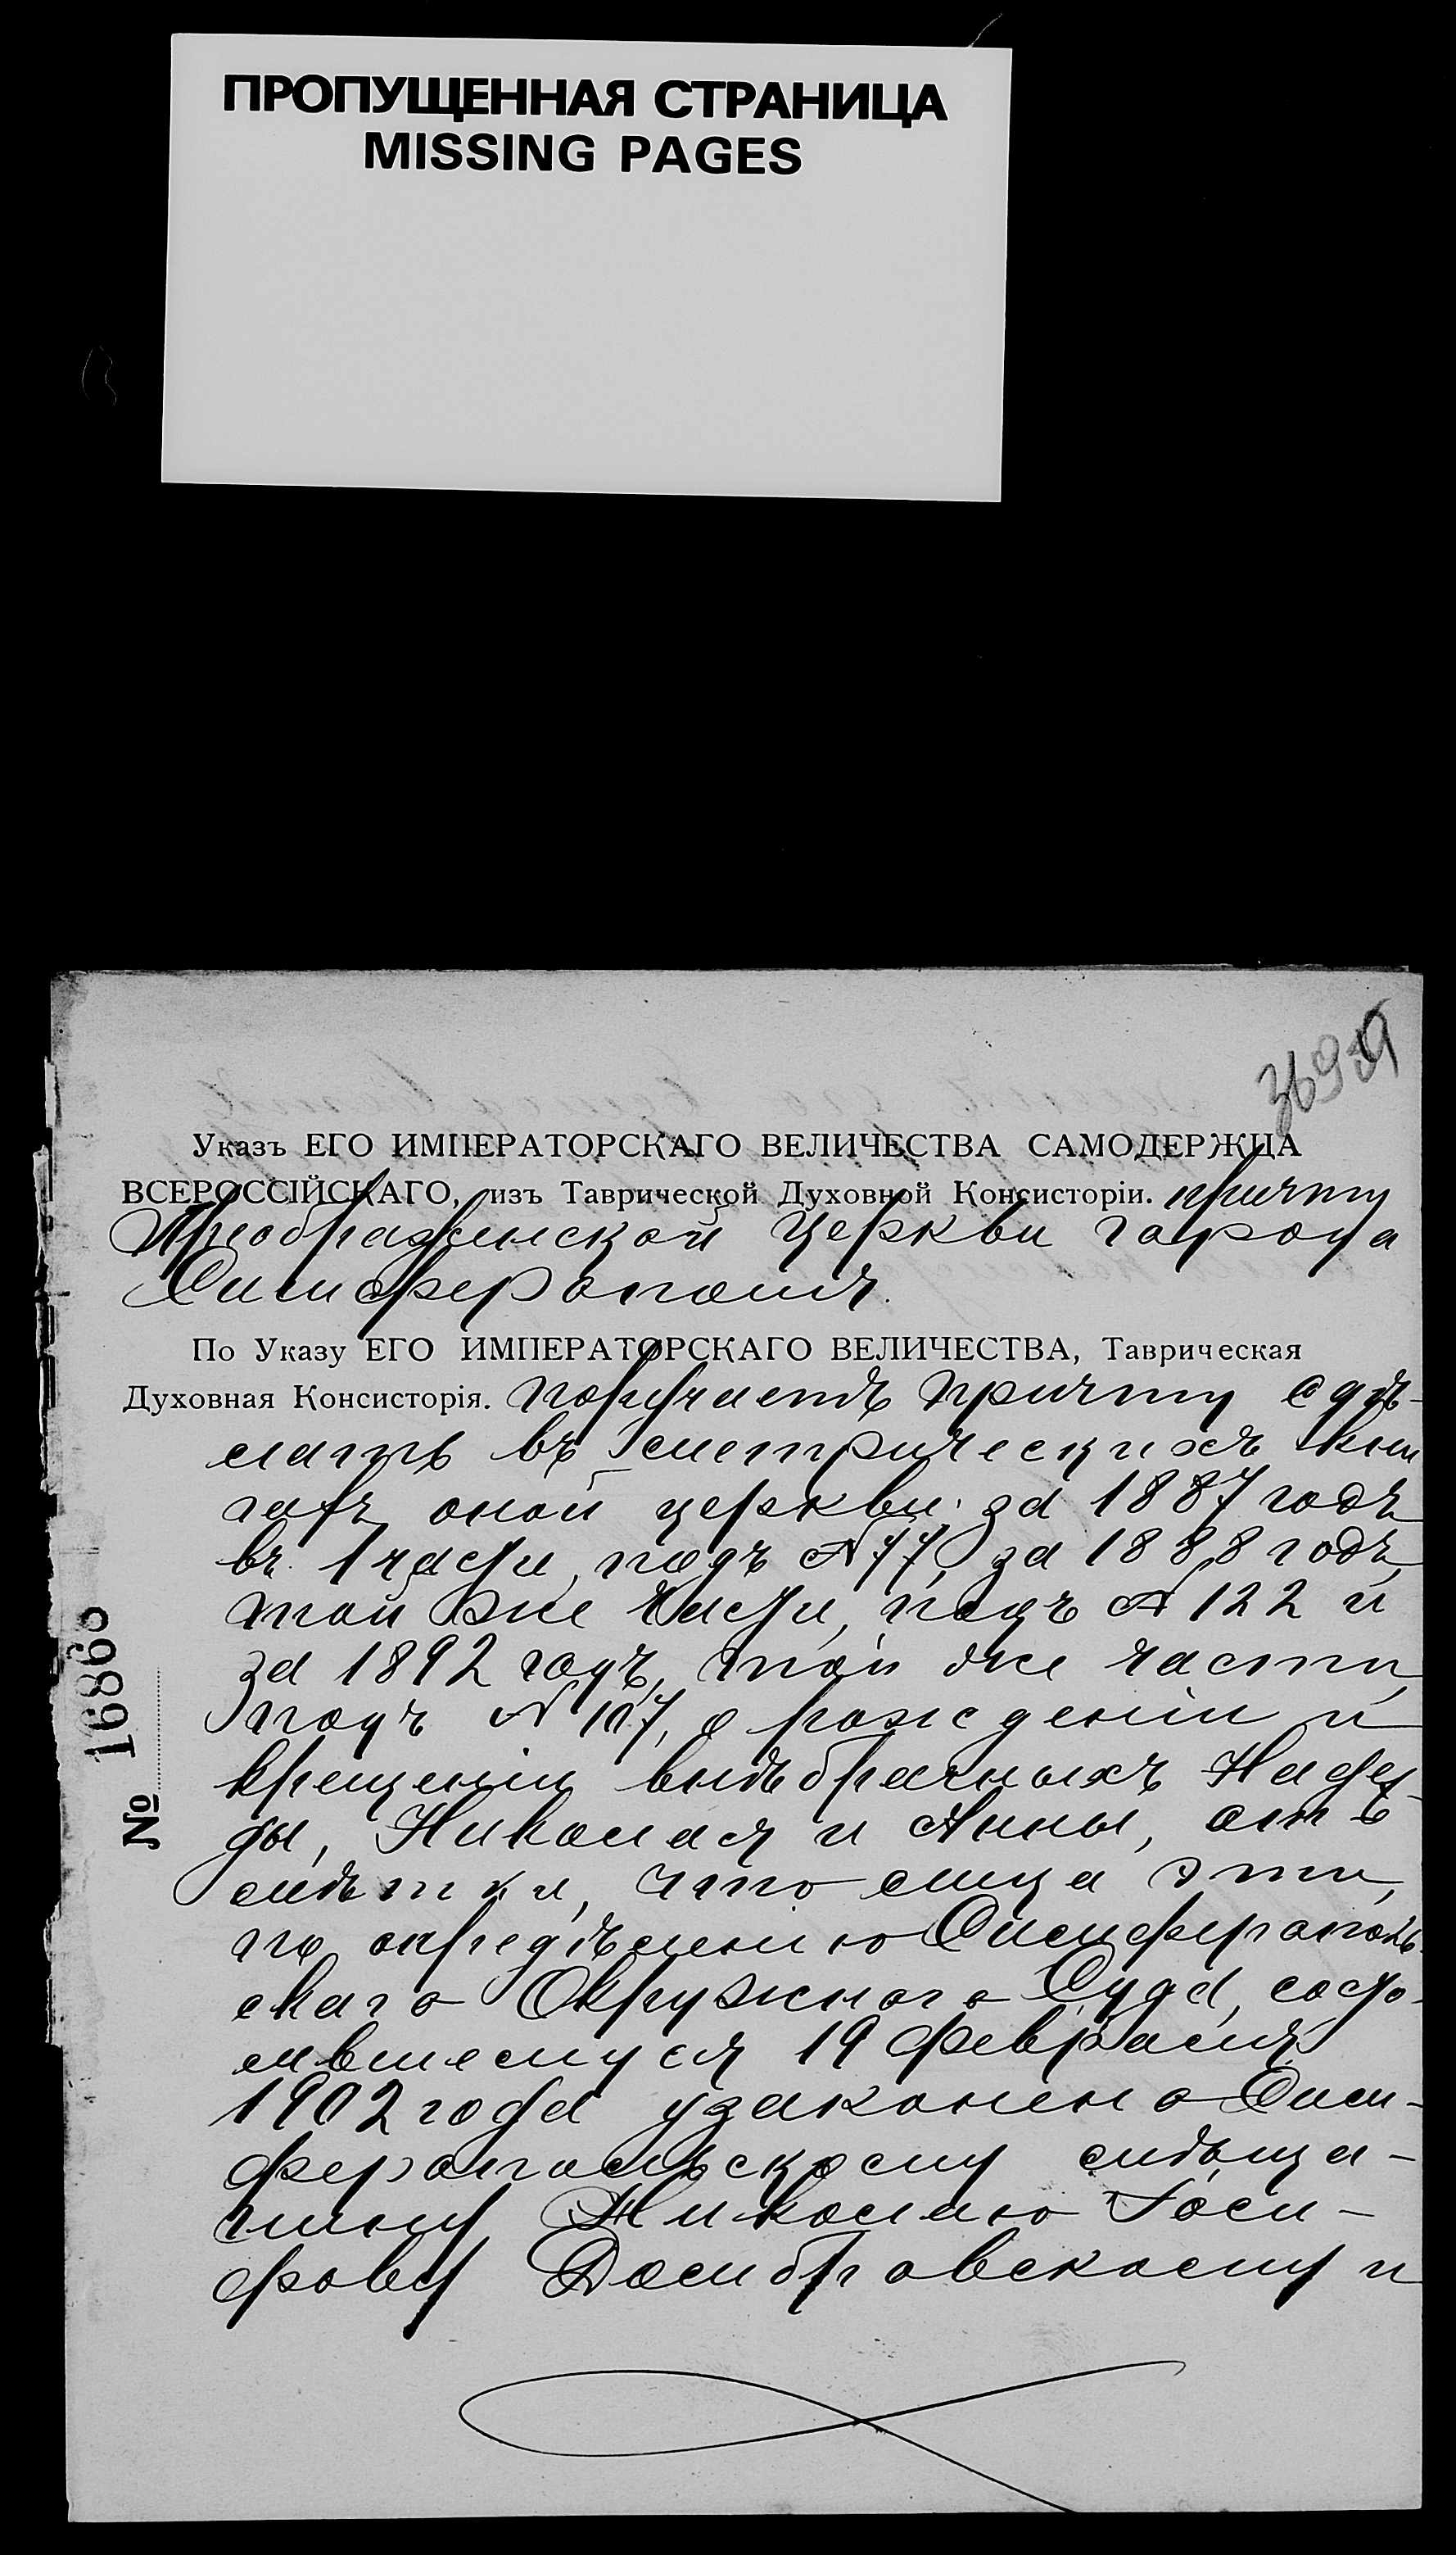 ПРОПУЩЕННАЯ СТРАНИЦА
MISSING PAGES
Указъ ЕГО ИМПЕРАТОРСКАГО ВЕЛИЧЕСТВА САМОДЕРЖЦА
ВСЕРОССІЙСКАГО, изъ Таврической Духовной Консисторіи. причту
Преображенской церкви города
Симферополя.
По Указу ЕГО ИМПЕРАТОРСКАГО ВЕЛИЧЕСТВА, Таврическая
Духовная Консисторія. поручаетъ причту сдѣ-
лать въ метрическихъ кни
гахъ оной церкви за 1887 годъ
въ 1 части, подъ № 77, за 1888 годъ,
той же части, подъ № 122 и
за 1892 годъ, той же части,
подъ № 107, о рожденіи и
крещеніи внѣбрачныхъ Надеж-
ды, Николая и Анны, от-
мѣтки, что лица эти,
по опредѣленію Симферополь-
скаго Окружного Суда, состо-
явшемуся 19 февраля
1902 года узаконено Сим-
феропольскому мѣща-
нину Николаю Іоси-
фову Домбровскому и
№ 16865